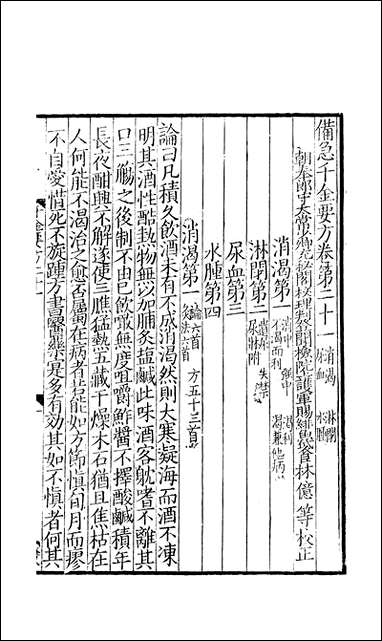 備急千金要方卷第二十一 消渴 淋閉 尿血 水腫
朝奉郎守太常少卿充祕閣校理判登聞檢院護軍賜緋魚袋臣林億等校正
消渴第一 消中 強中 渴利 不渴而利 渴兼他病
淋閉第二 遺溺 失禁 尿牀附
尿血第三
水腫第四
消渴第一 論六首 方五十三首 灸法六首
論曰凡積久飲酒未有不成消渴然則大寒凝海而酒不凍
明其酒性酷熱物無以加脯炙鹽鹹此味酒客躭嗜不離其
口三觴之後制不由己飲噉無度咀嚼鮓醬不擇酸鹹積年
長夜酣興不解遂使三膲猛熱五藏干燥木石猶且焦枯在
人何能不渴治之愈否屬在病者若能如方節慎旬月而瘳
不自愛惜死不旋踵方書醫藥實是多有効其如不慎者何其